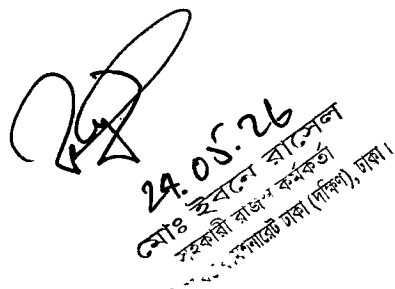 24.05.26
মোঃ ইবনে রাসেল
সহকারী রাজস্ব কর্মকর্তা
ঢাকা (দক্ষিণ), ঢাকা।